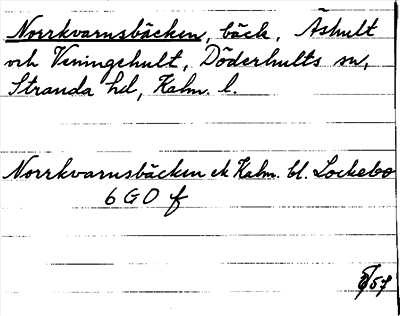 Norrkvarnsbäcken, bäck, Äshult
och Veningehult, Döderhults sn,
Stranda hd, Kalm. l.
Norrkvarnsbäcken ek Kalm. bl. Lockebo
6 G 0 f